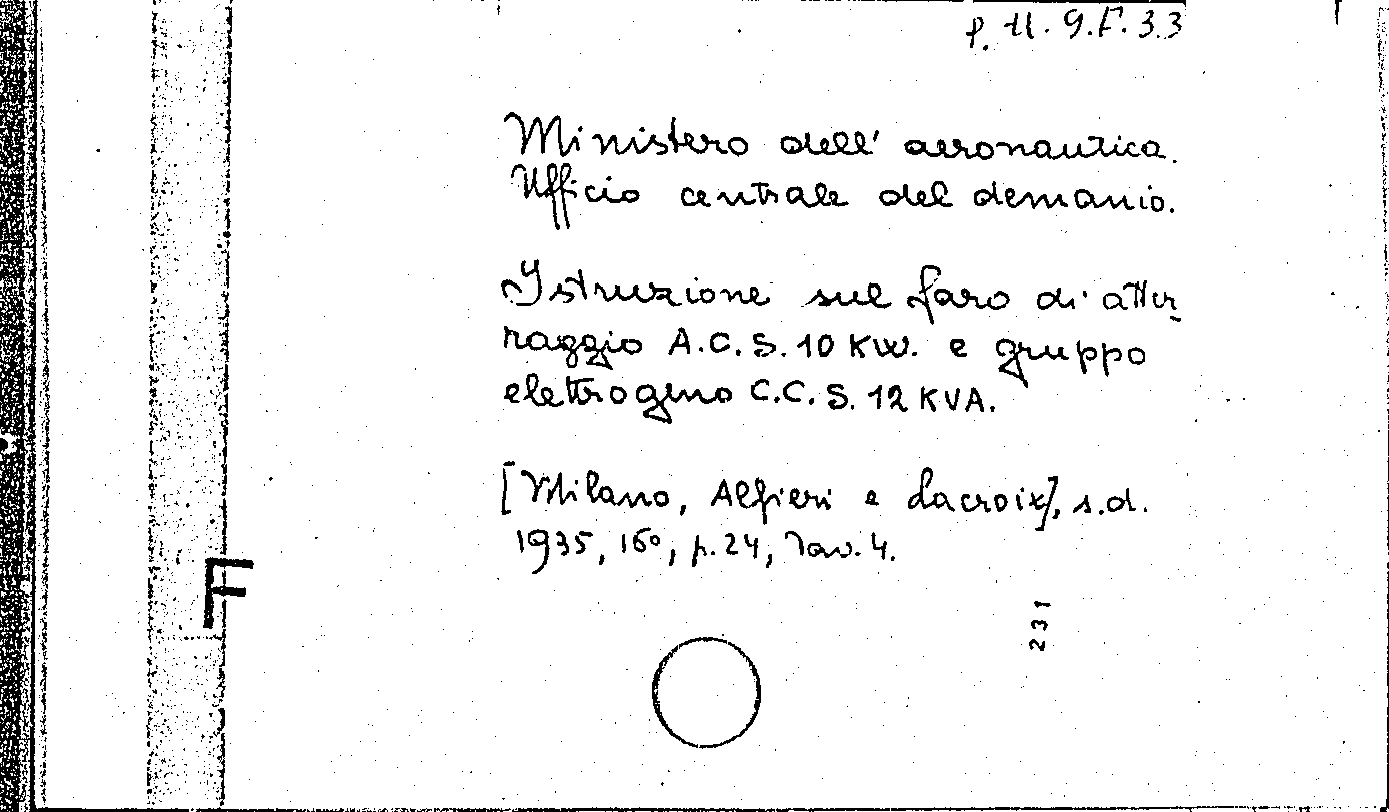 P. H. 9. F. 33
Ministero dell' aeronautica.
Ufficio centrale del demanio.
Istruzione sul faro di atter-
raggio A.C.S. 10 KW. e gruppo
elettrogeno C.C.S. 12 KVA.
[Milano, Alfieri e Lacroix], s.d.
1935, 16°, p. 24, Tav. 4.
231
F